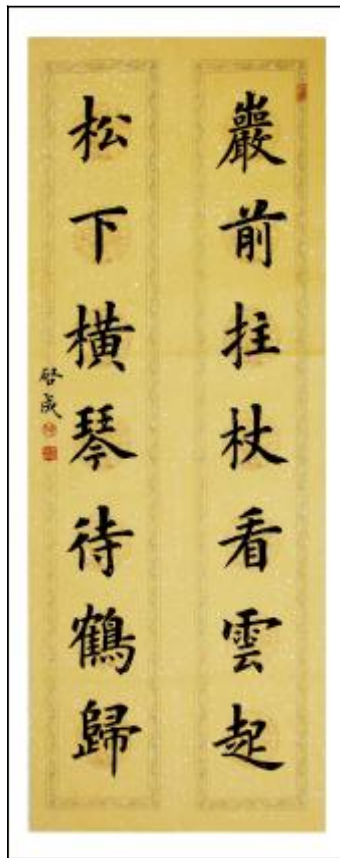 巖前拄杖看雲起
松下橫琴待鶴歸
啓成